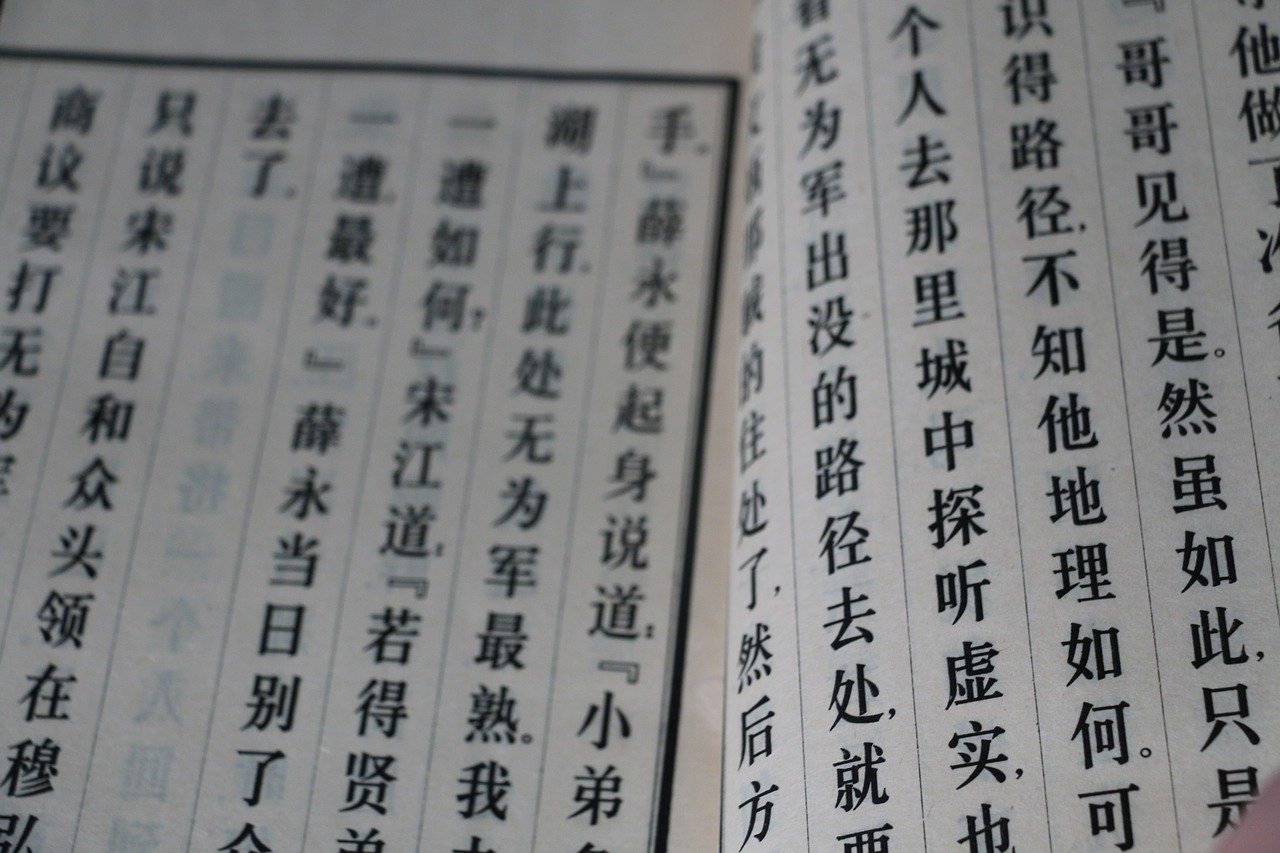 他做了
『哥哥见得是。然虽如此,只是
识得路径,不知他地理如何。可
个人去那里城中探听虚实,也
看无为军出没的路径去处,就要
的住处了,然后方
手。』薛永便起身说道:『小弟
湖上行。此处无为军最熟。我
一遭如何?』宋江道:『若得贤弟
一遭。最好。』薛永当日别了
去了。
只说宋江自和众头领在穆弘
商议要打无为军